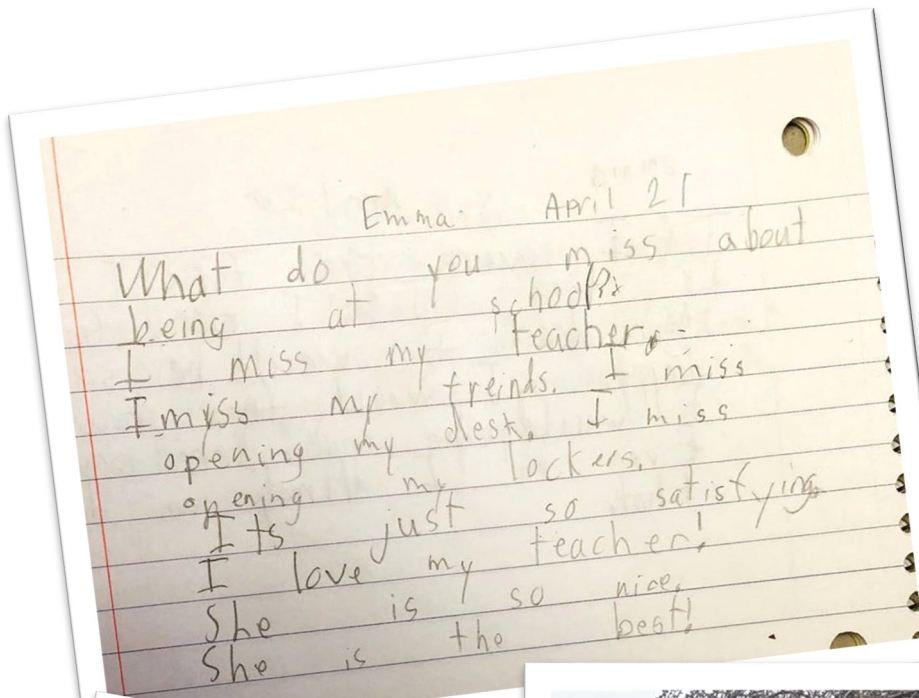 Emma. April 21
What do you miss about
being at school?
I miss my teacher.
I miss my freinds. I miss
opening my desk. I miss
opening my lockers.
Its just so satisfying.
I love my teacher!
She is so nice.
She is the best!